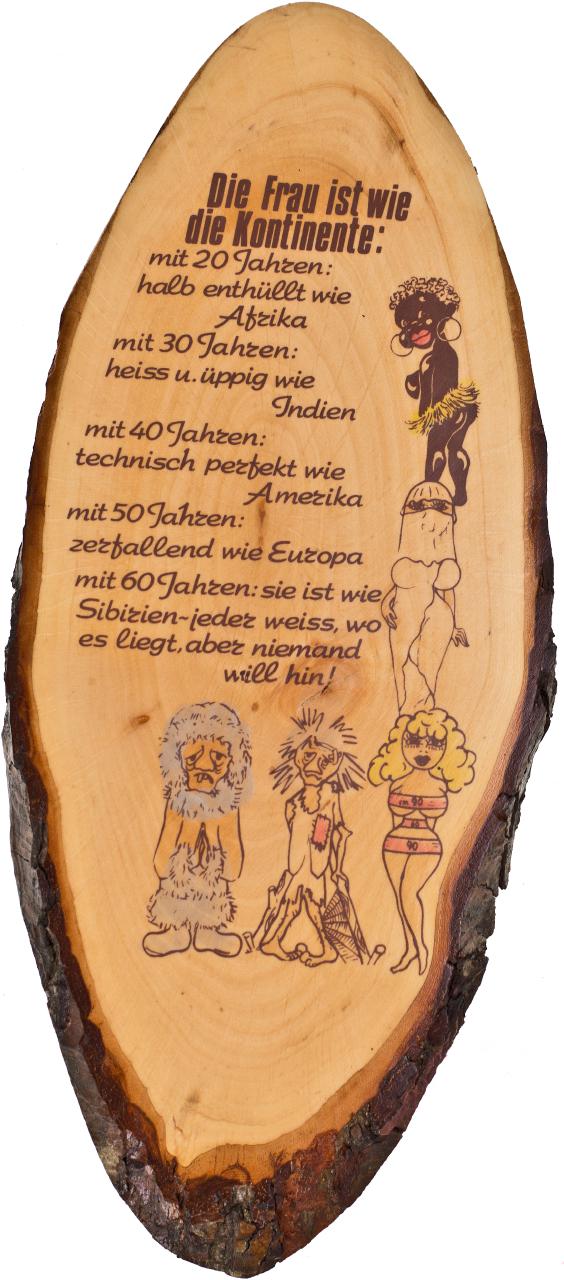 Die Frau ist wie
die Kontinente:
mit 20 Jahren:
halb enthüllt wie
Afrika
mit 30 Jahren:
heiss u. üppig wie
Indien
mit 40 Jahren:
technisch perfekt wie
Amerika
mit 50 Jahren:
zerfallend wie Europa
mit 60 Jahren: sie ist wie
Sibirien-jeder weiss, wo
es liegt, aber niemand
will hin!
cm 90
60
90